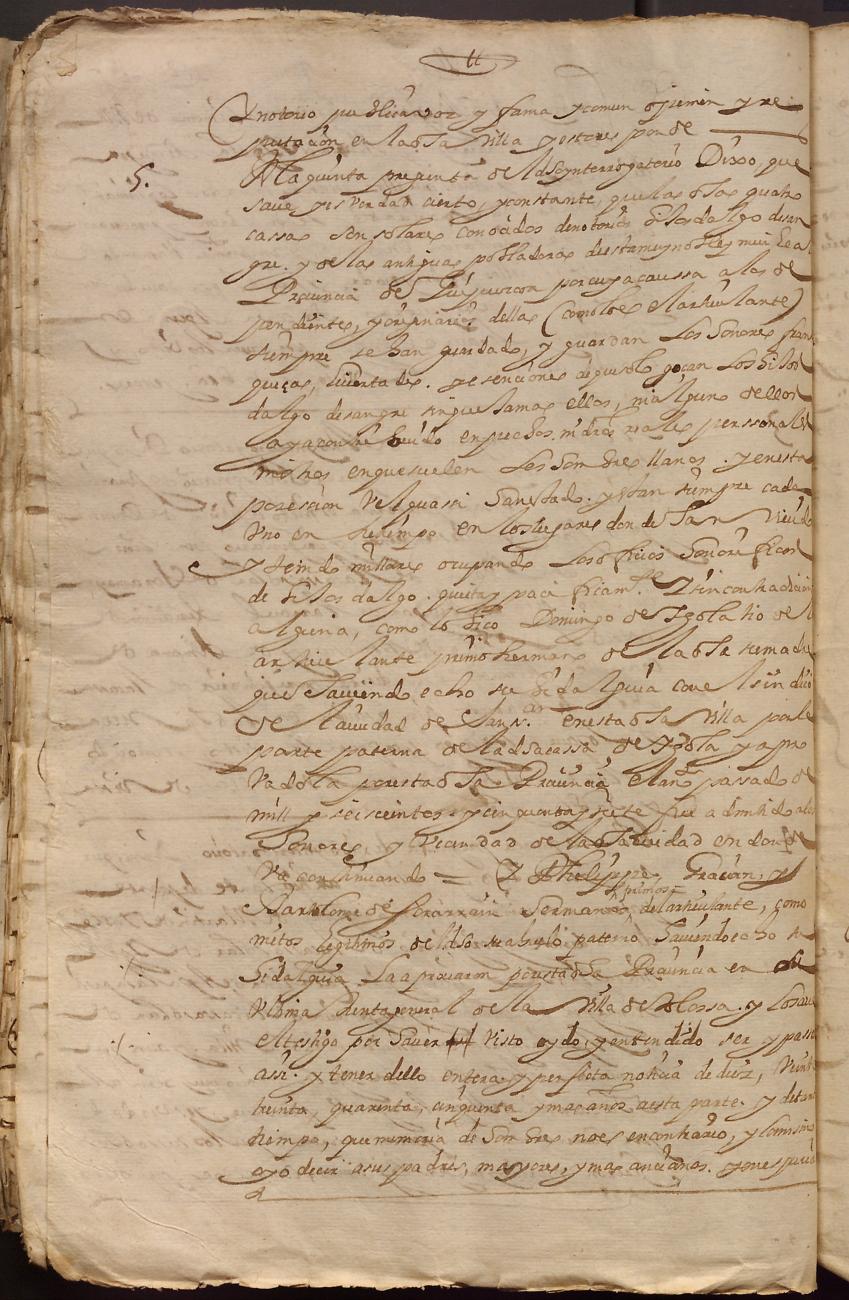 notorio publica voz y fama y comun opinion y re
putacion en la dha Villa y esto responde
5. A la quinta pregunta del dho ynterrogatorio Dixo, que
save, y es verdad cierto, y constante, que las dhas quatro
cassas son solares conocidos de notorios hijos dalgo de san
gre. y de las antiguas pobladoras desta muy noble y muy lea
Provincia de Guipuzcoa por cuya caussa a los de
pendientes, y originarios dellas (como lo es el articulante)
siempre se han guardado, y guardan los honores fran
quezas, livertades. y esenciones de que solo goçan los hijos
dalgo de sangre sin que jamas ellos, ni alguno dellos
aya contribuido en pechos. ni dros reales personales
mistos en que suelen los hombres llanos. y en esta
posesion vel quassi han estado. y estan siempre cada
uno en su tiempo en los lugares donde han vivido
y tenido millares ocupando los officios honorificos
de hijos dalgo. quieta y pacificamte. Y sin contradicion
alguna, como lo hizo Domingo de Ygola tio del
articulante primo hermano de la dha su madre
que haviendo echo su hidalguia con el sindico
de la ciudad de San s.an en esta dha Villa por la
parte paterna de la dha cassa de Ygola y apro
vadola por esta dha Provincia el año passado de
mill y seiscientos y cinquenta y siete fue admitido a los
honores y vecindad de la dha ciudad en donde
va continuando = Y Phelippe, Gracian, y
Bartolome de hermanos, primos del articulante, como
nietos legitimos del dho su abuelo paterno haviendo echo su
hidalguia la aprovaron por esta dha Provincia en la
Ultima Junta general de la Villa de Tolossa. y lo save
el testigo por haver visto oydo, y entendido ser y passar
assi. y tener dello entera y perfecta noticia de diez, veinte
treinta, quarenta, cinquenta y mas años a esta parte. y de tanto
tiempo, que memoria de hombres no es en contrario, y lo mismo
oyo decir a sus padres, mayores, y mas ancianos.